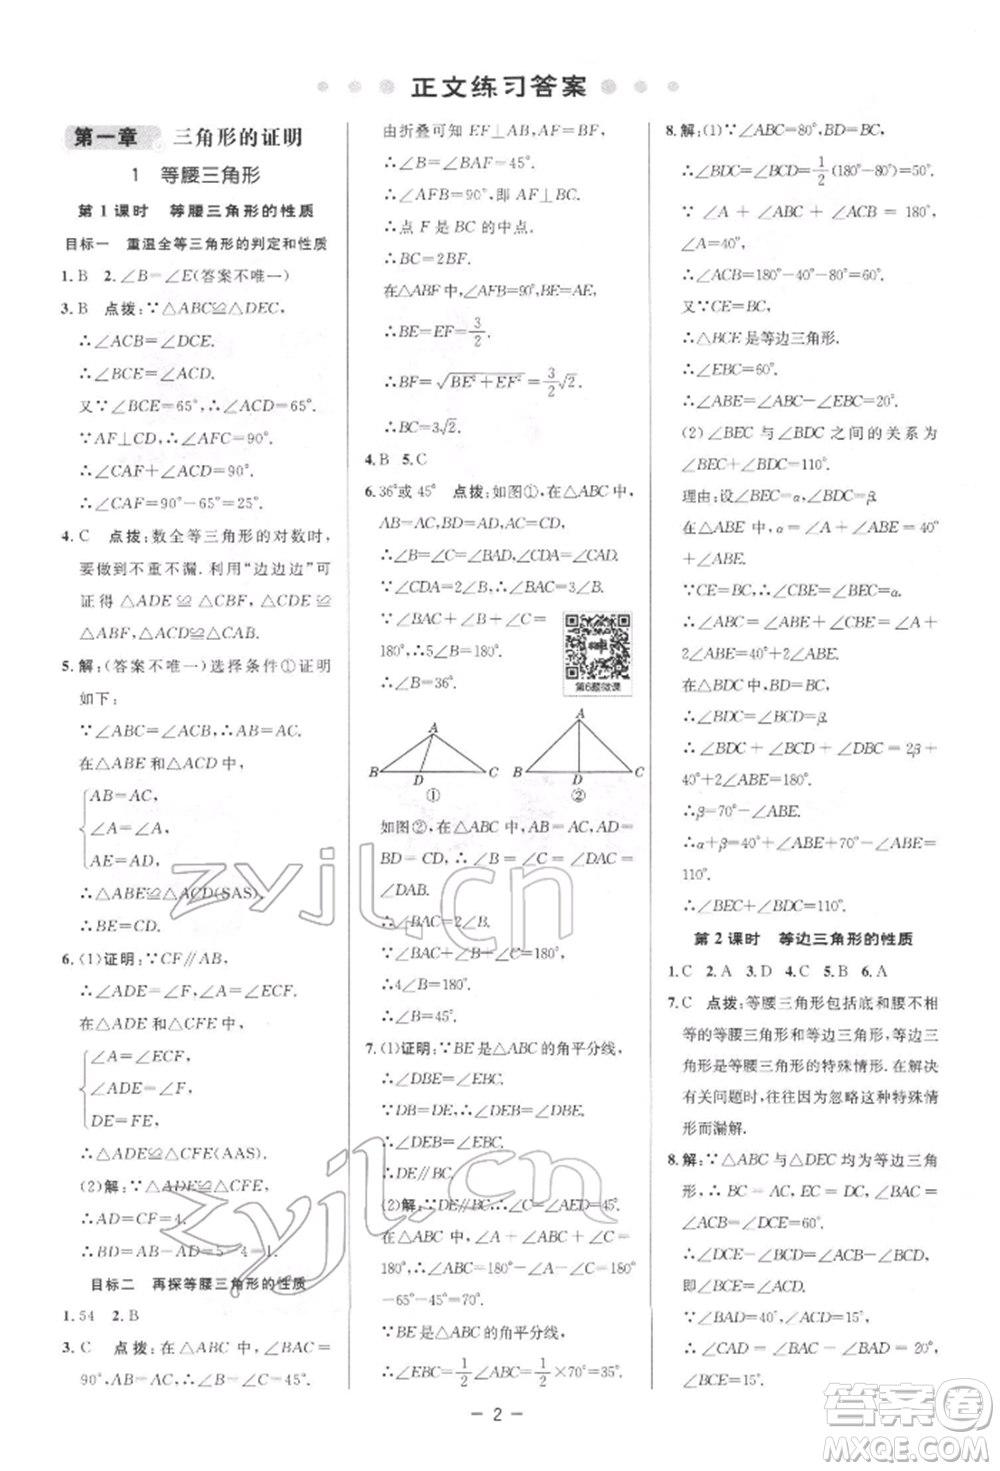 正文练习答案
第一章 三角形的证明
1 等腰三角形
第1课时 等腰三角形的性质
目标一 重温全等三角形的判定和性质
1. B 2. ∠B=∠E(答案不唯一)
3. B 点拨:∵△ABC≌△DEC,
∴∠ACB=∠DCE.
∴∠BCE=∠ACD.
又∵∠BCE=65°,∴∠ACD=65°.
∵AF⊥CD,∴∠AFC=90°.
∴∠CAF+∠ACD=90°.
∴∠CAF=90°-65°=25°.
4. C 点拨:数全等三角形的对数时,
要做到不重不漏.利用“边边边”可
证得△ADE≌△CBF,△CDE≌
△ABF,△ACD≌△CAB.
5. 解:(答案不唯一)选择条件①证明
如下:
∵∠ABC=∠ACB,∴AB=AC.
在△ABE和△ACD中,
AB=AC,
∠A=∠A,
AE=AD,
∴△ABE≌△ACD(SAS).
∴BE=CD.
6. (1)证明:∵CF∥AB,
∴∠ADE=∠F,∠A=∠ECF.
在△ADE和△CFE中,
∠A=∠ECF,
∠ADE=∠F,
DE=FE,
∴△ADE≌△CFE(AAS).
(2)解:∵△ADE≌△CFE,
∴AD=CF=4.
∴BD=AB-AD=5-4=1.
目标二 再探等腰三角形的性质
1. 54 2. B
3. C 点拨:在△ABC中,∠BAC=
90°,AB=AC,∴∠B=∠C=45°.
由折叠可知EF⊥AB,AF=BF,
∴∠B=∠BAF=45°.
∴∠AFB=90°,即AF⊥BC.
∴点F是BC的中点.
∴BC=2BF.
在△ABF中,∠AFB=90°,BE=AE,
∴BE=EF=3/2.
∴BF=√(BE²+EF²)=3/2√2.
∴BC=3√2.
4. B 5. C
6. 36°或45° 点拨:如图①,在△ABC中,
AB=AC=BC,AD=BD,
∴∠B=∠C=∠BAD,∠CDA=∠CAD.
∵∠CDA=2∠B,∴∠BAC=3∠B.
∵∠BAC+∠B+∠C=
180°,∴5∠B=180°.
∴∠B=36°.
第6题微课
A
B D C
①
A
B D C
②
如图②,在△ABC中,AB=AC,AD=
BD=CD,∴∠B=∠C=∠DAC=
∠DAB.
∴∠BAC=2∠B.
∵∠BAC+∠B+∠C=180°,
∴4∠B=180°.
∴∠B=45°.
7. (1)证明:∵BE是△ABC的角平分线,
∴∠DBE=∠EBC.
∵DB=DE,
∴∠DEB=∠DBE.
∴∠DEB=∠EBC.
∴DE∥BC.
(2)解:∵DE∥BC,
∴∠C=∠AED=45°.
∴∠ABC=180°-∠A-∠C=180°
-65°-45°=70°.
∵BE是△ABC的角平分线,
∴∠EBC=1/2∠ABC=1/2×70°=35°.
8. 解:(1)∵∠ABC=80°,BD=BC,
∴∠BDC=∠BCD=1/2(180°-80°)=50°.
∵∠A+∠ABC+∠ACB=180°,
∠A=40°,
∴∠ACB=180°-40°-80°=60°.
又∵CE=BC,
∴△BCE是等边三角形.
∴∠EBC=60°.
∴∠ABE=∠ABC-∠EBC=20°.
(2)∠BEC与∠BDC之间的关系为
∠BEC+∠BDC=110°.
理由:设∠BEC=α,∠BDC=β.
在△ABE中,α=∠A+∠ABE=40°
+∠ABE.
∵CE=BC,∴∠CBE=∠BEC=α.
∴∠ABC=∠ABE+∠CBE=∠A+
2∠ABE=40°+2∠ABE.
在△BDC中,BD=BC,
∴∠BDC=∠BCD=β.
∴∠BDC+∠BCD+∠DBC=2β+
40°+2∠ABE=180°.
∴β=70°-∠ABE.
∴α+β=40°+∠ABE+70°-∠ABE=
110°.
∴∠BEC+∠BDC=110°.
第2课时 等边三角形的性质
1. C 2. A 3. D 4. C 5. B 6. A
7. C 点拨:等腰三角形包括底和腰不相
等的等腰三角形和等边三角形,等边三
角形是等腰三角形的特殊情形.在解决
有关问题时,往往因为忽略这种特殊情
形而漏解.
8. 解:∵△ABC与△DEC均为等边三角
形,∴BC=AC,∠BAC=
∠ACB=∠DCE=60°.
∴∠DCE-∠ACE=∠ACB-∠ACE,
即∠BCE=∠ACD.
∵∠BAD=40°,∠ADC=15°,
∴∠CAD=∠BAC-∠BAD=20°.
∴∠BCE=∠ACD=180°-20°-15°=145°.
- 2 -
zyjl.cn
zyjl.cn
答案圈
MXQE.COM